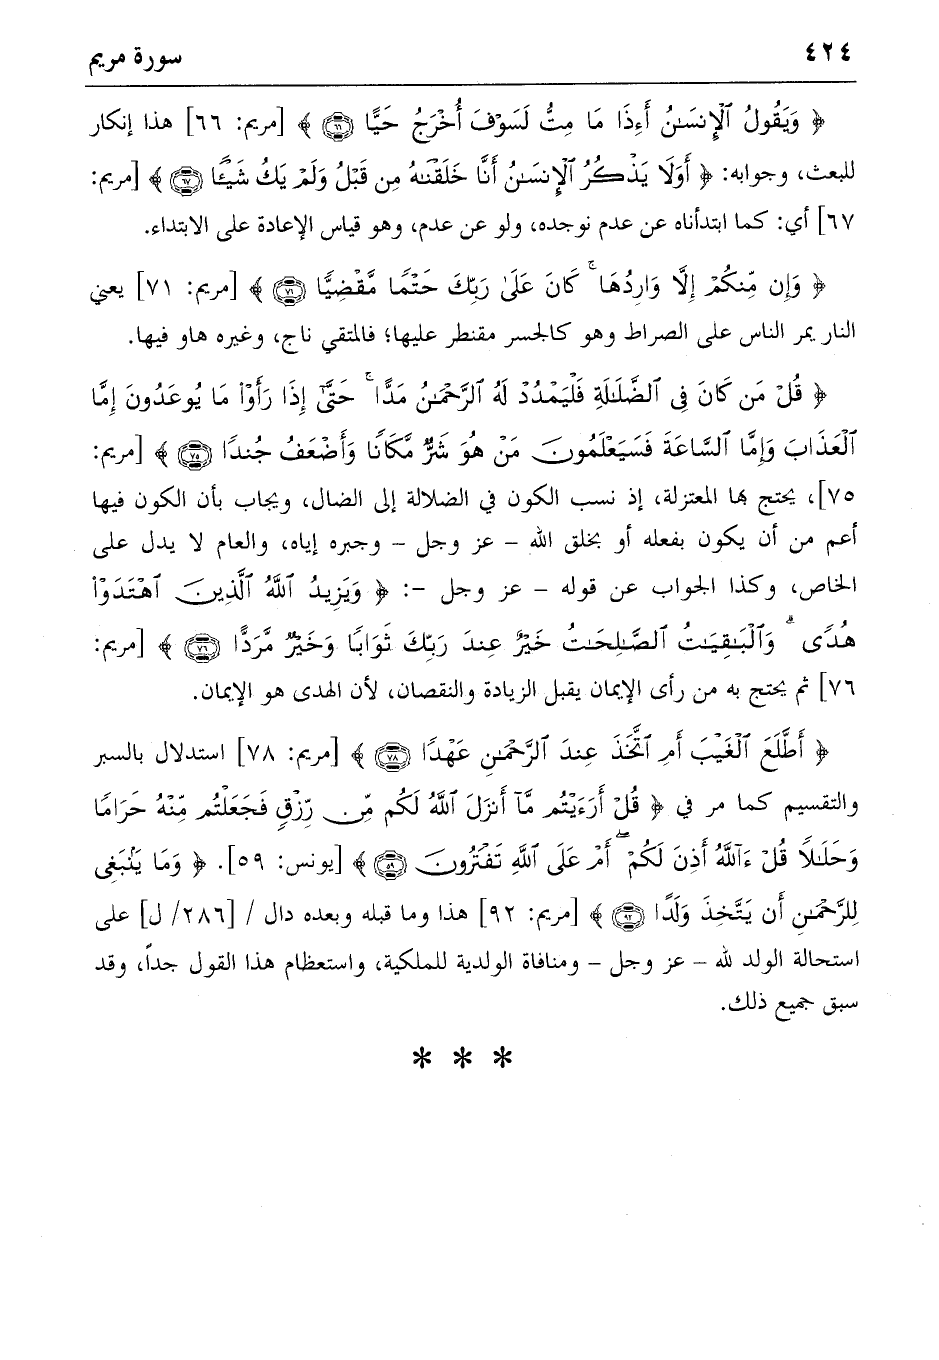 ٤٢٤
سورة مريم
﴿ وَيَقُولُ ٱلْإِنسَـٰنُ أَءِذَا مَا مِتُّ لَسَوْفَ أُخْرَجُ حَيًّا ٦٦ ﴾ [مريم: ٦٦] هذا إنكار
للبعث، وجوابه: ﴿ أَوَلَا يَذْكُرُ ٱلْإِنسَـٰنُ أَنَّا خَلَقْنَـٰهُ مِن قَبْلُ وَلَمْ يَكُ شَيْـًٔا ٦٧ ﴾ [مريم:
٦٧] أي: كما ابتدأناه عن عدم نوجده، ولو عن عدم، وهو قياس الإعادة على الابتداء.
﴿ وَإِن مِّنكُمْ إِلَّا وَارِدُهَا ۚ كَانَ عَلَىٰ رَبِّكَ حَتْمًا مَّقْضِيًّا ٧١ ﴾ [مريم: ٧١] يعني
النار يمر الناس على الصراط وهو كالجسر مقنطر عليها؛ فالمتقي ناج، وغيره هاو فيها.
﴿ قُلْ مَن كَانَ فِى ٱلضَّلَـٰلَةِ فَلْيَمْدُدْ لَهُ ٱلرَّحْمَـٰنُ مَدًّا ۚ حَتَّىٰٓ إِذَا رَأَوْا۟ مَا يُوعَدُونَ إِمَّا
ٱلْعَذَابَ وَإِمَّا ٱلسَّاعَةَ فَسَيَعْلَمُونَ مَنْ هُوَ شَرٌّ مَّكَانًا وَأَضْعَفُ جُندًا ٧٥ ﴾ [مريم:
٧٥]، يحتج بها المعتزلة، إذ نسب الكون في الضلالة إلى الضال، ويجاب بأن الكون فيها
أعم من أن يكون بفعله أو بخلق الله – عز وجل – وجبره إياه، والعام لا يدل على
الخاص، وكذا الجواب عن قوله – عز وجل –: ﴿ وَيَزِيدُ ٱللَّهُ ٱلَّذِينَ ٱهْتَدَوْا۟
هُدًى ۗ وَٱلْبَـٰقِيَـٰتُ ٱلصَّـٰلِحَـٰتُ خَيْرٌ عِندَ رَبِّكَ ثَوَابًا وَخَيْرٌ مَّرَدًّا ٧٦ ﴾ [مريم:
٧٦] ثم يحتج به من رأى الإيمان يقبل الزيادة والنقصان، لأن الهدى هو الإيمان.
﴿ أَطَّلَعَ ٱلْغَيْبَ أَمِ ٱتَّخَذَ عِندَ ٱلرَّحْمَـٰنِ عَهْدًا ٧٨ ﴾ [مريم: ٧٨] استدلال بالسبر
والتقسيم كما مر في ﴿ قُلْ أَرَءَيْتُم مَّآ أَنزَلَ ٱللَّهُ لَكُم مِّن رِّزْقٍ فَجَعَلْتُم مِّنْهُ حَرَامًا
وَحَلَـٰلًا قُلْ ءَآللَّهُ أَذِنَ لَكُمْ ۖ أَمْ عَلَى ٱللَّهِ تَفْتَرُونَ ٥٩ ﴾ [يونس: ٥٩]. ﴿ وَمَا يَنۢبَغِى
لِلرَّحْمَـٰنِ أَن يَتَّخِذَ وَلَدًا ٩٢ ﴾ [مريم: ٩٢] هذا وما قبله وبعده دال / [٢٨٦/ ل] على
استحالة الولد لله – عز وجل – ومنافاة الولدية للملكية، واستعظام هذا القول جداً، وقد
سبق جميع ذلك.
* * *